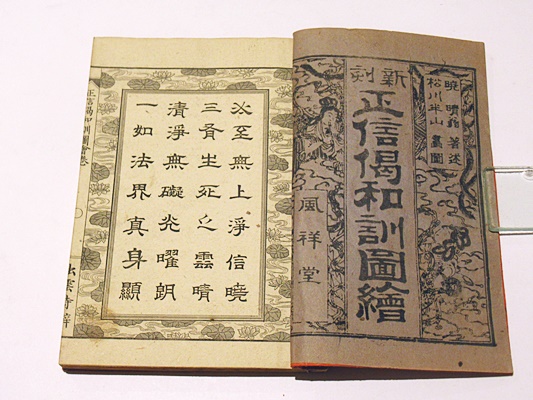 新刻
曉晴翁 著述
松川半山 畫圖
正信偈和訓圖繪
風祥堂
必至無上淨信曉
三有生死之雲晴
清淨無礙光曜朗
一如法界真身顯
正信偈和訓圖會卷